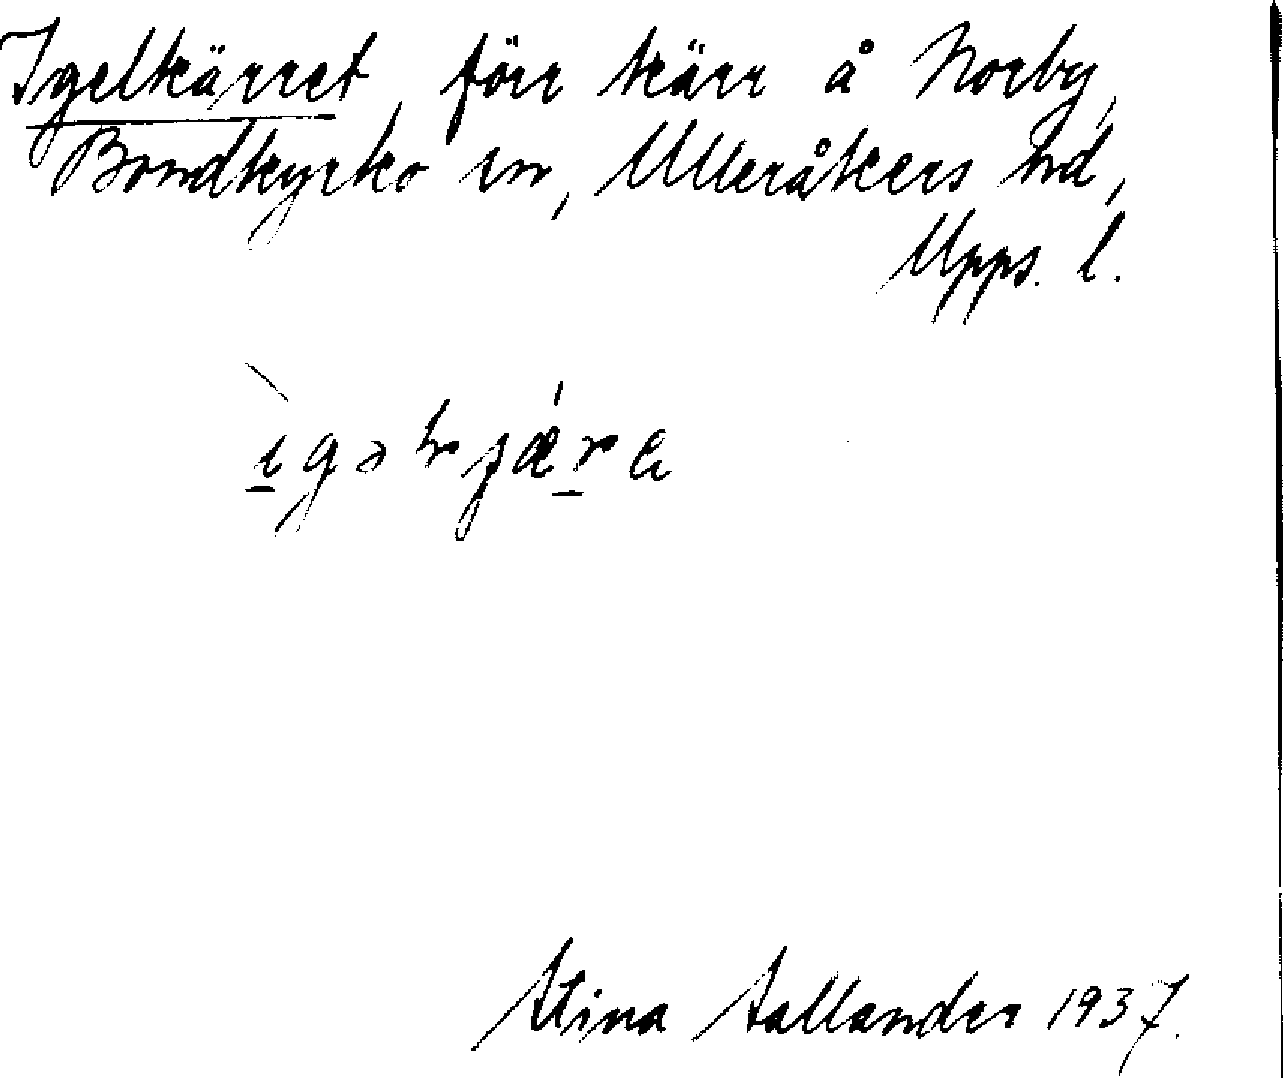 Igelkärret, förr kärr å Norby,
Bondkyrko sn, Ulleråkers hd,
Upps. l.
Stina Sallander 1937.